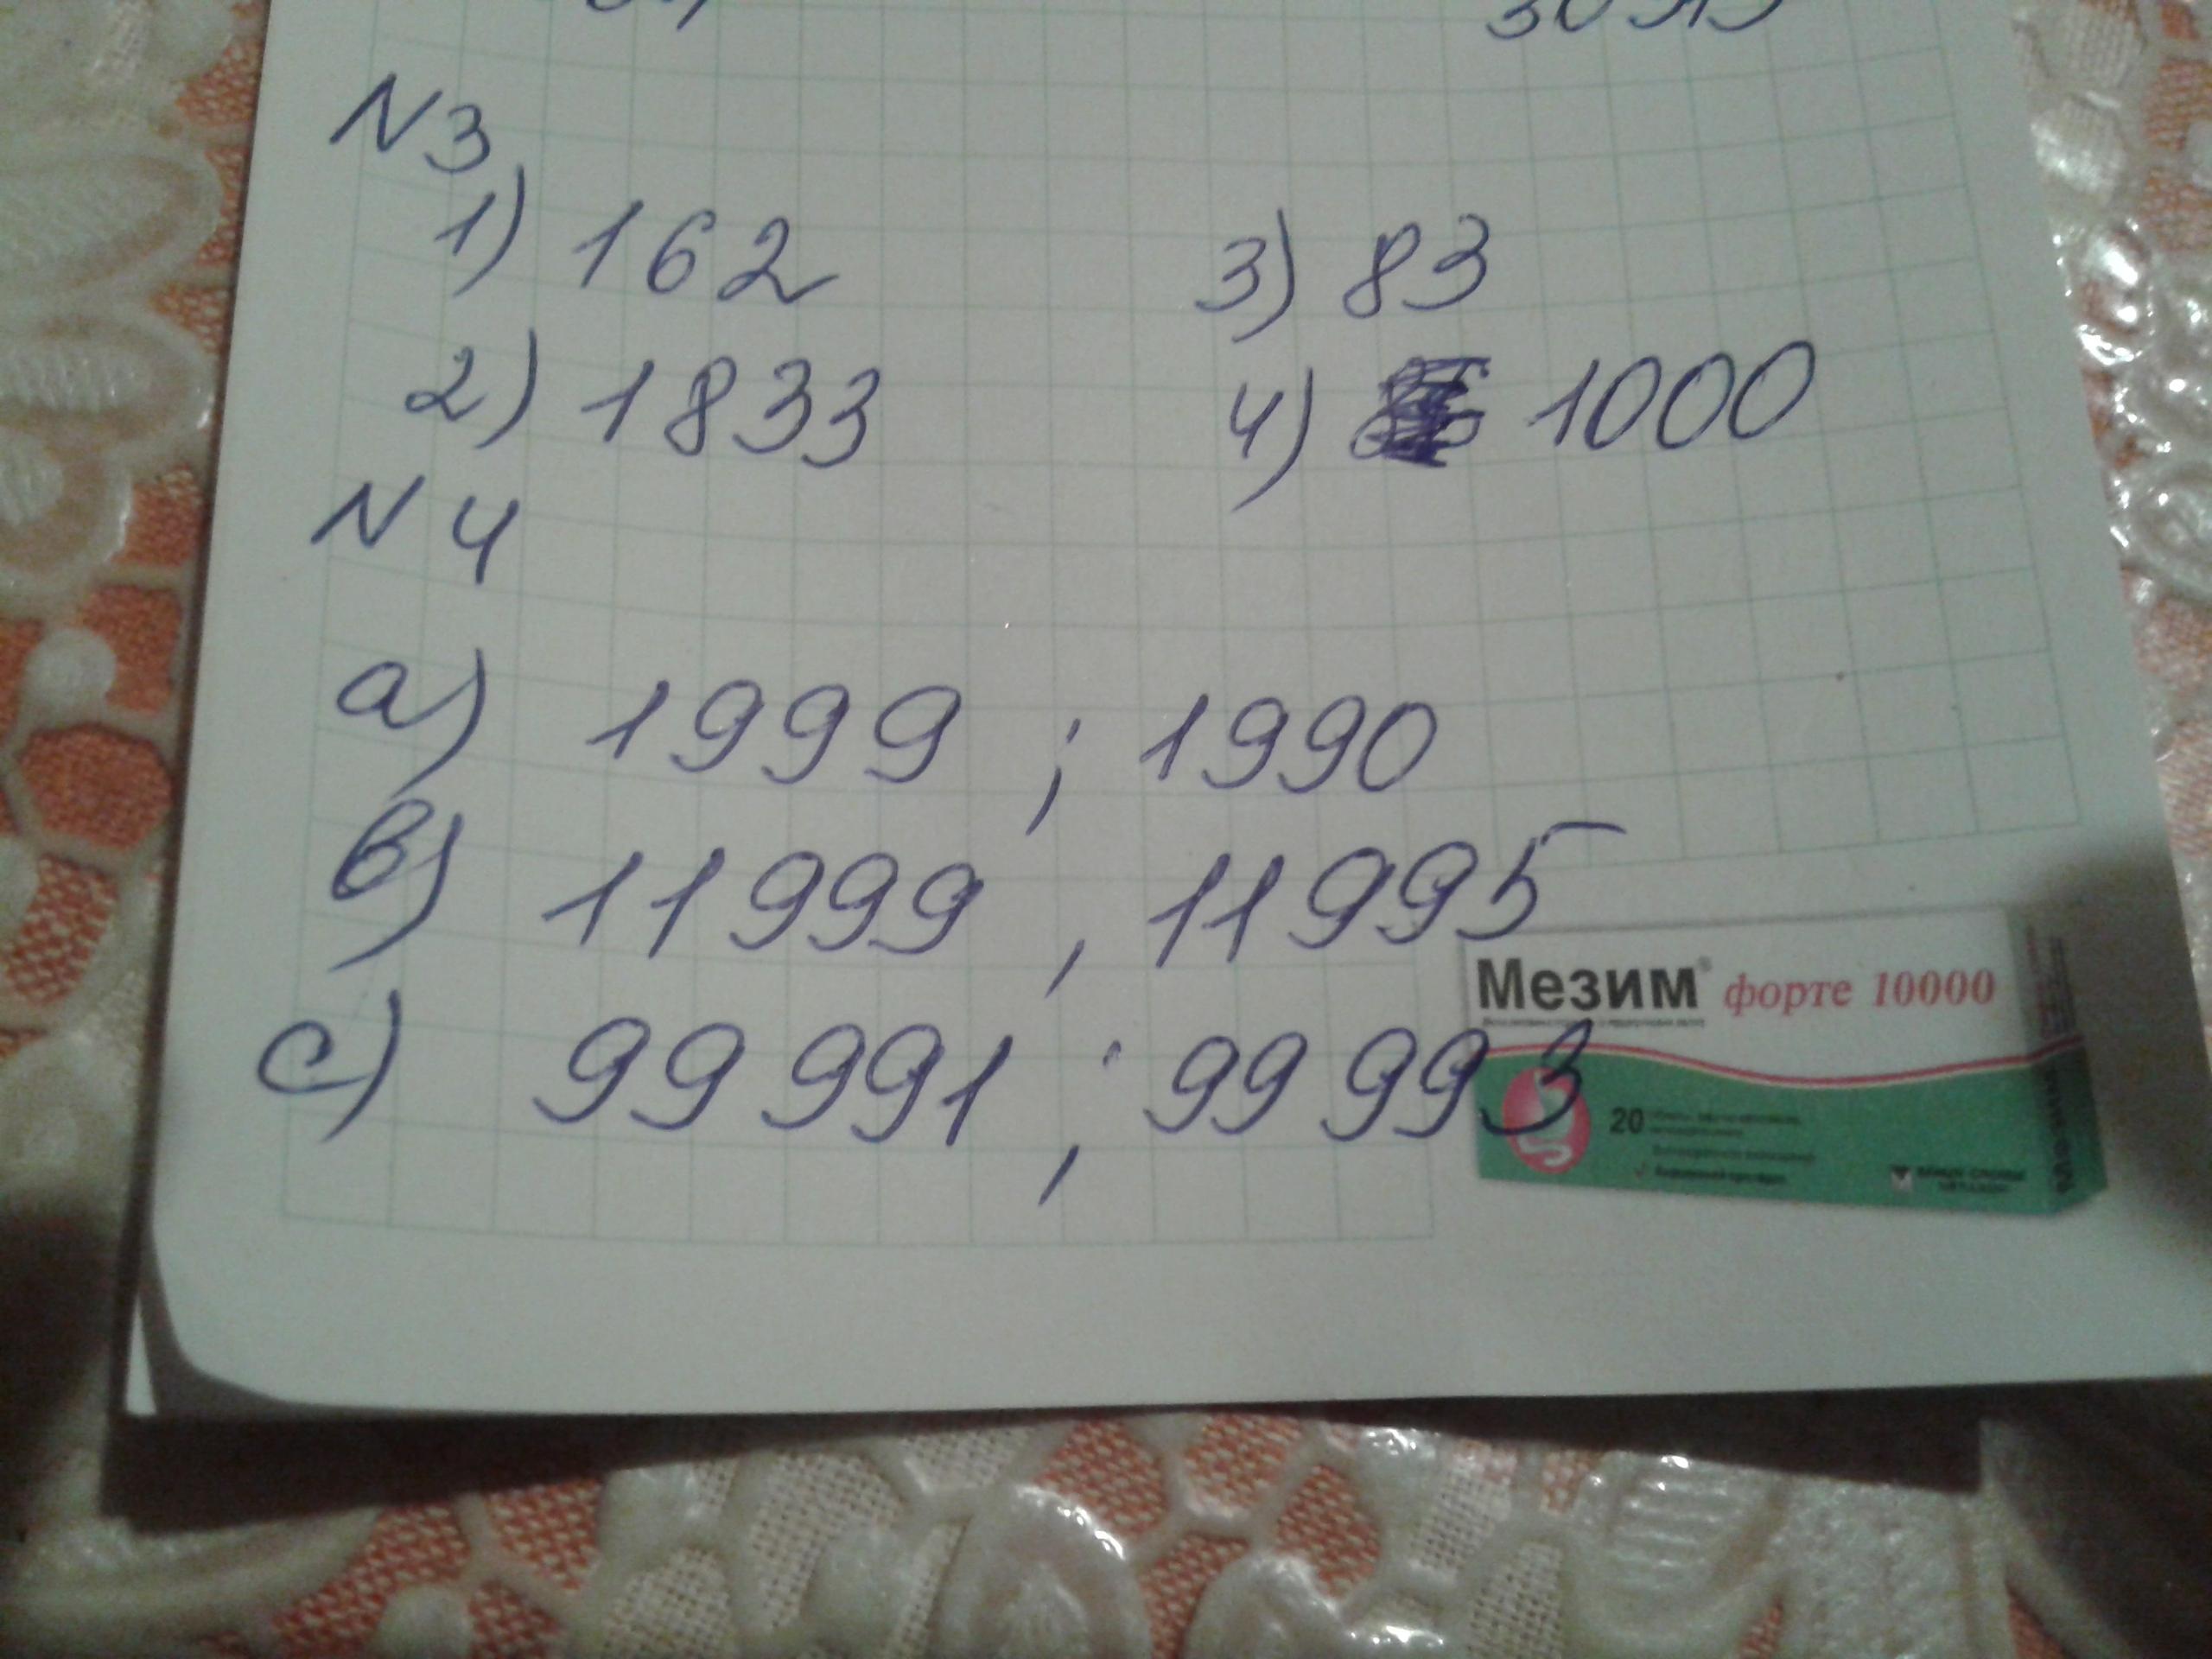 N3
1) 162 3) 83
2) 1833 4) 1000
N 4
a) 1999 ; 1990
в) 11999 , 11995
c) 99 991 ; 99 993
Мезим® форте 10000
20